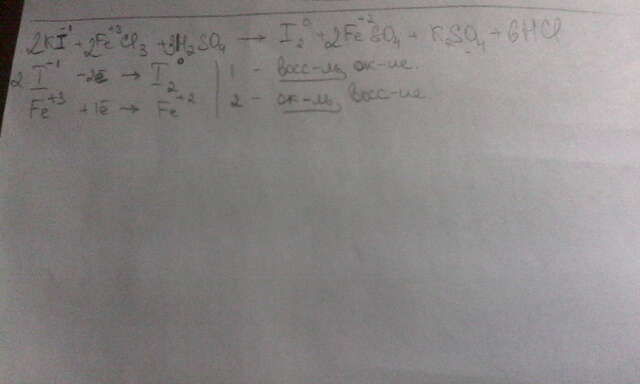 2KI⁻¹ + 2Fe⁺³Cl₃ + 3H₂SO₄ → I₂⁰ + 2Fe⁺²SO₄ + K₂SO₄ + 6HCl
2I⁻¹ -2ē → I₂⁰ | 1 - восс-ль, ок-ие.
Fe⁺³ +1ē → Fe⁺² | 2 - ок-ль, восс-ие